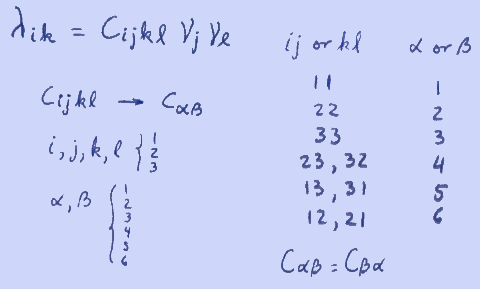 λik = Cijkl νj νl
Cijkl → Cαβ
i, j, k, l { 1 2 3
α, β { 1 2 3 4 5 6
ij or kl α or β
11 1
22 2
33 3
23, 32 4
13, 31 5
12, 21 6
Cαβ = Cβα